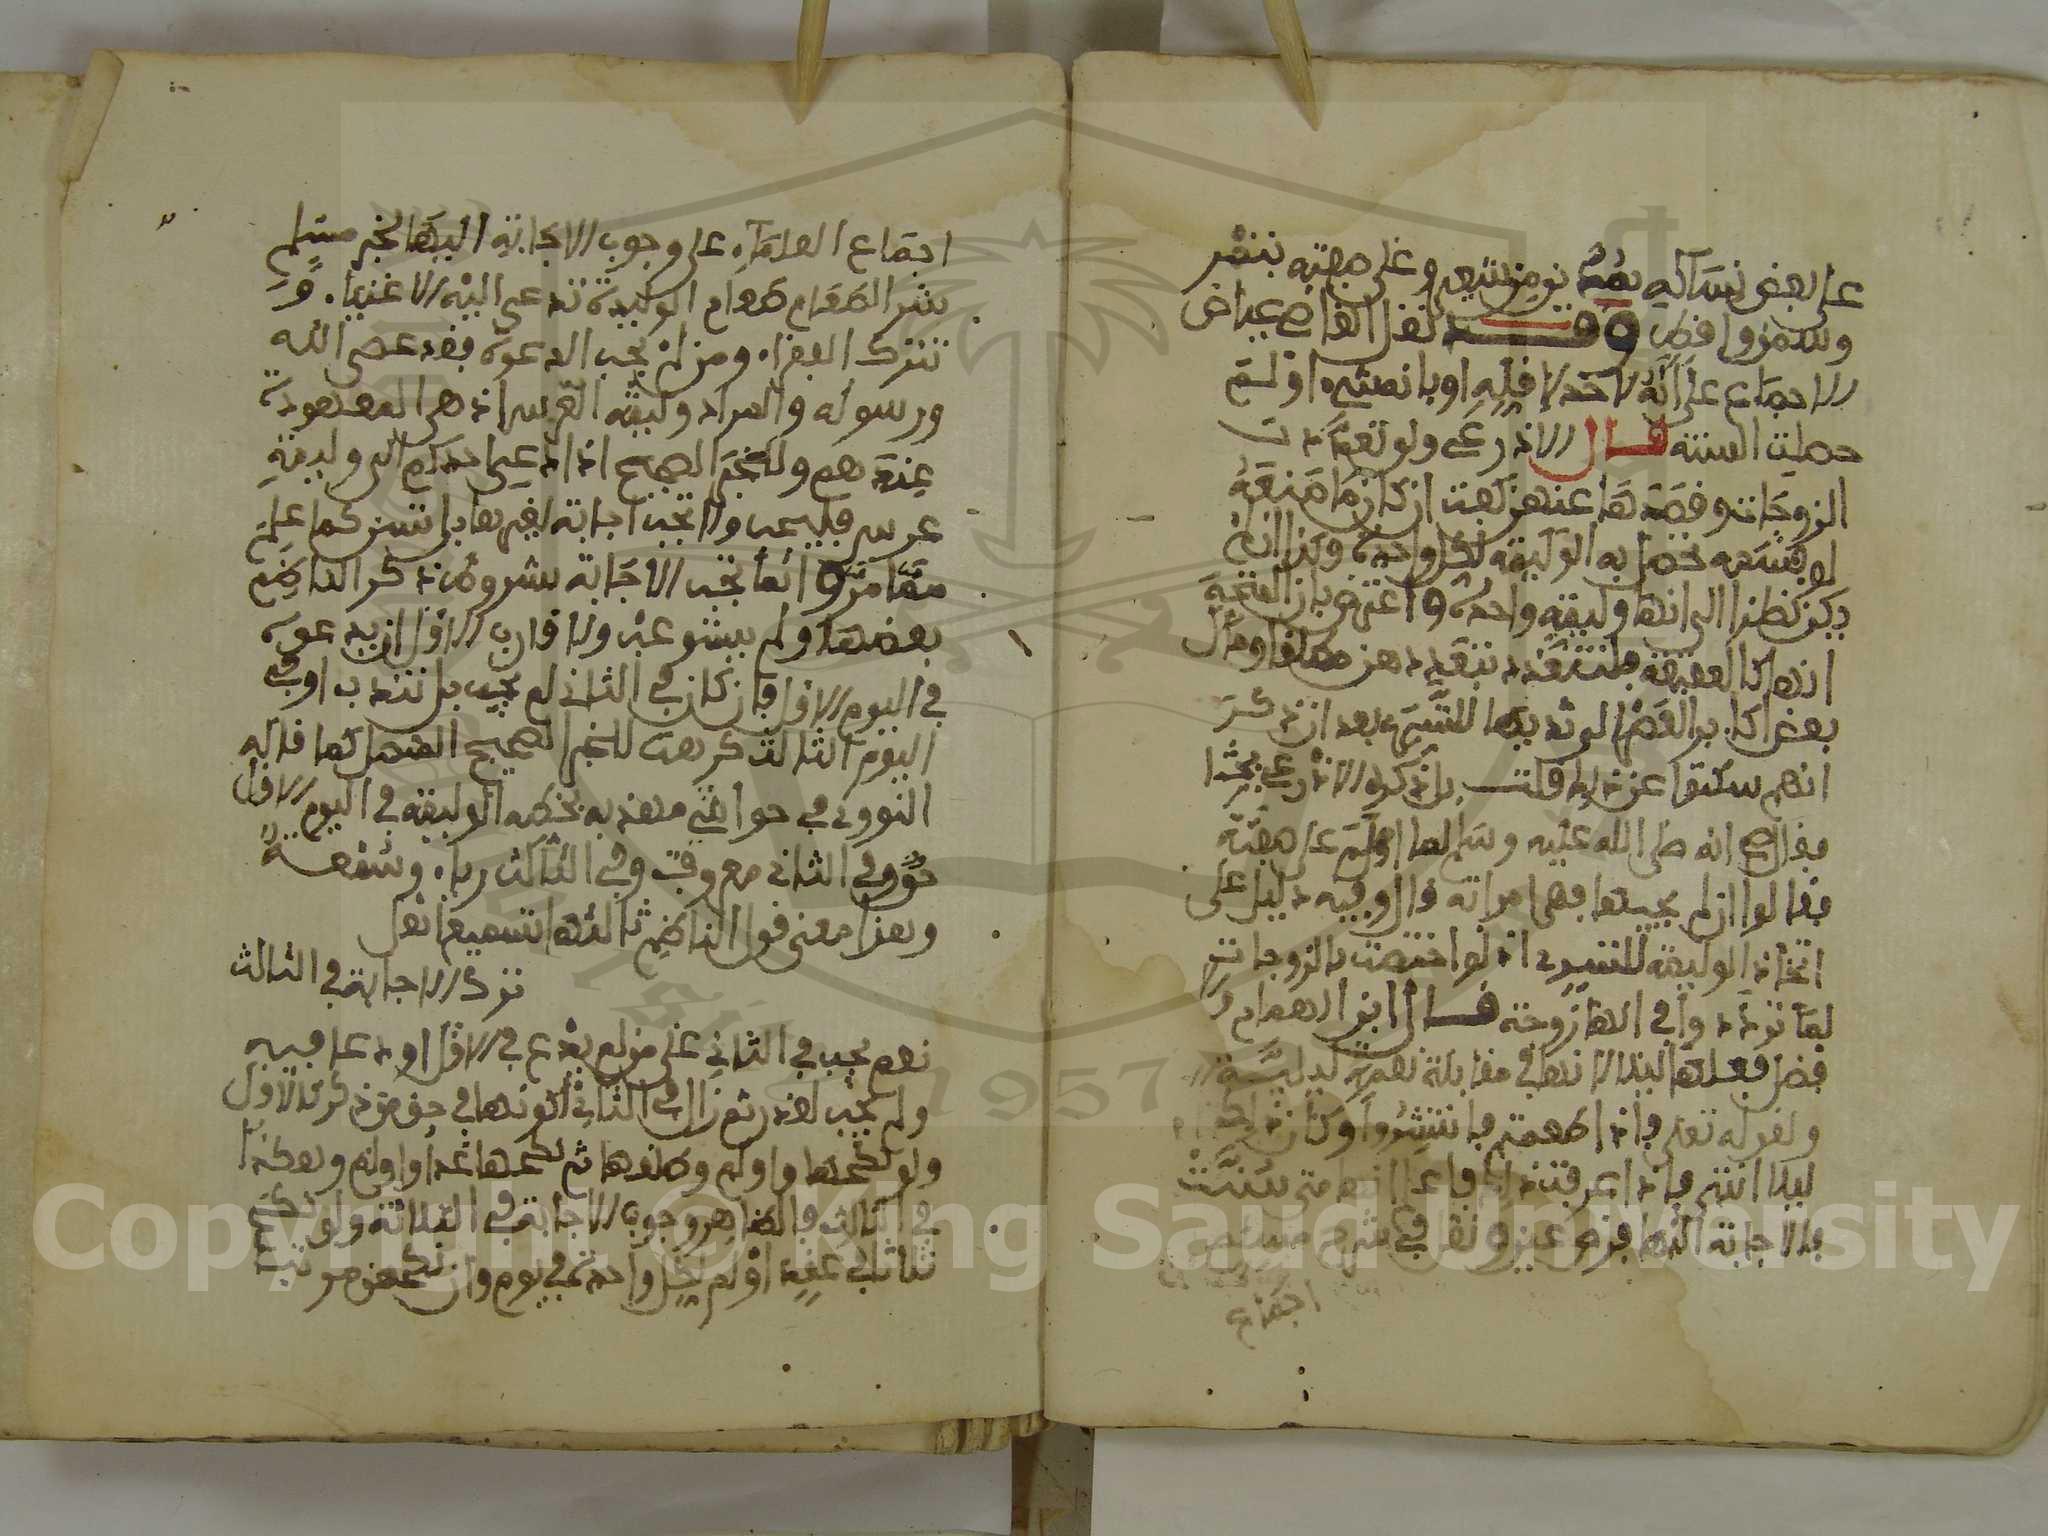 على بعض نسائه بمدين من شعير وعلى صفية بتمر
وسمن واقط وقد نقل القاضي عياض
الاجماع على انه لا حد لاقله او باي شيء اولم
حصلت السنة قال الاذرعي ولو تعددت
الزوجات وقصدها عنهن كفت ان كان ما صنعه
لو قسمه حصل به الوليمة لكل واحدة وكذا ان لم
يكن نظرا الى انها وليمة واحدة واعترض بان المتجه
انها كالعقيقة فتتعدد بتعددهن مطلقا ومال
بعض اكابر الفضلا لوند بها للتسري بعد ان ذكر
انهم سكتوا عن ذلك قلت بل ذكره الاذرعي بحثا
فقال صح انه صلى الله عليه وسلم لما اولم على صفية
فقالوا ان لم يحجبها فهي امراته قال وفيه دليل على
اتخاذ الوليمة للتسري اذ لو اختصت بالزوجات
لما ترددوا في انها زوجة قال ابن الهمام
فضل فعلها ليلا لانها في مقابلة نعمة ليلية
ولقوله تعلى فاذا طعمتم فانتشروا وكان ذلك
ليلا انتهى فاذا عرفت ذلك فاعلم انها متى سنت
فالاجابة اليها فرض عين ونقل في شرح مسلم
اجماع
اجماع العلماء على وجوب الاجابة اليها لخبر مسلم
شر الطعام طعام الوليمة تدعى اليه الاغنيا. و
تترك الفقراء ومن لم يجب الدعوة فقد عصى الله
ورسوله والمراد وليمة العرس اذ هي المعهودة
عندهم وللخبر الصحيح اذا دعي احدكم الى وليمة
عرس فليجب ولا تجب اجابة لغيرها بل تسن كما علم
مما مر وانما تجب الاجابة بشروط ذكر الناظم
بعضها ولم يستوعب ولا قارب الاول ان يدعوه
في اليوم الاول فان كان في الثاني لم يجب بل تندب او في
اليوم الثالث كرهت للخبر الصحيح المتصل كما قاله
النووي في حواشي مهذبه بخطه الوليمة في اليوم الاول
حق وفي الثاني معروف وفي الثالث رياء وسمعة
وهذا معنى قول الناظم ثالثها تسميع انقل
ترك الاجابة في الثالث
نعم يجب في الثاني على من لم يدع في الاول او دعا فيه
ولم يجب لعذر ثم زال في الثاني لكونها في حق من ذكر كالاول
ولو نكحها واولم وطلقها ثم نكحها غدا واولم وهكذا
في الثالث فالظاهر وجوب الاجابة في الثلاثة ولو نكح
ثلاثا في عقد اولم لكل واحدة في يوم وان نكحهن مرتبا